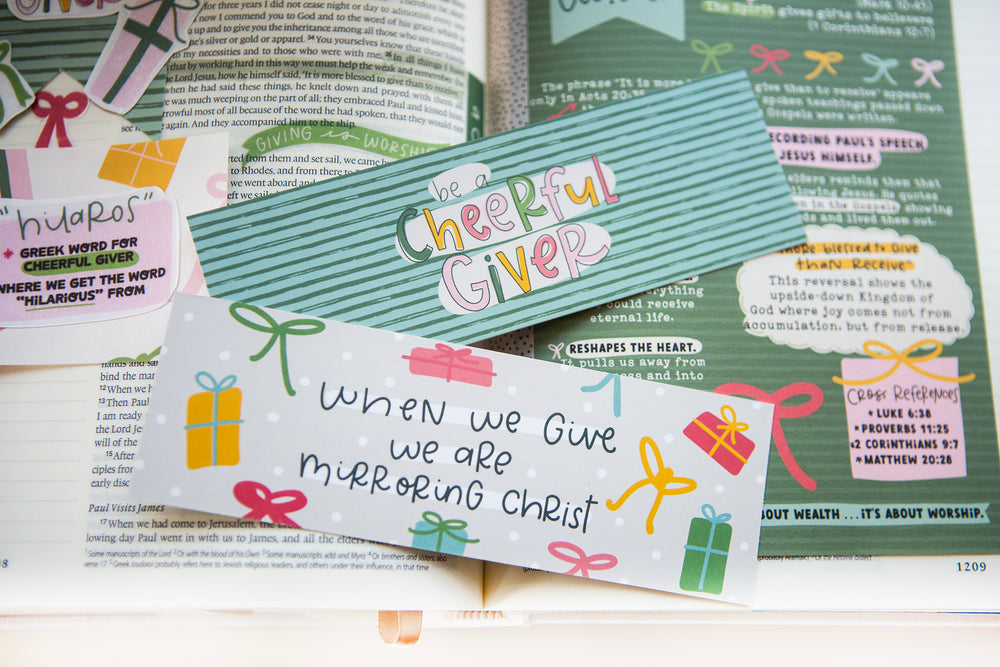 for three years I did not cease night or day to admonish every
now I commend you to God and to the word of his grace, which is
up and to give you the inheritance among all those who are sanctified
ne's silver or gold or apparel. 34 You yourselves know that these
to my necessities and to those who were with me. 35 In all things I have
that by working hard in this way we must help the weak and remember the
he Lord Jesus, how he himself said, 'It is more blessed to give than to receive
when he had said these things, he knelt down and prayed with them all
re was much weeping on the part of all; they embraced Paul and kissed him
rowful most of all because of the word he had spoken, that they would not
again. And they accompanied him to the ship.
GIVING is WORSHIP
rted from them and set sail, we came
to Rhodes, and from there to
we went aboard and
eft we sailed
"hilaros"
* GREEK WORD FOR
CHEERFUL GIVER
WHERE WE GET THE WORD
"HILARIOUS" FROM
be a
Cheerful
Giver
when we give
we are
mirroring Christ
bind the man
12 When we h
13 Then Paul
I am ready
the Lord Je
will of the
15 After
ciples from
early disc
Paul Visits James
17 When we had come to Jerusalem, the
lowing day Paul went in with us to James, and all the elders were
1 Some manuscripts of the Lord 2 Or with the blood of his Own 3 Some manuscripts add and Myra 4 Or brothers and sisters; also
verse 17 5 Greek Ioudaioi probably refers here to Jewish religious leaders, and others under their influence, in that time
8
The Spirit gives gifts to believers
(1 Corinthians 12:7)
The phrase "It is more
only in Acts 20:35
give than to receive" appears
spoken teaching passed down
Gospels were written.
RECORDING PAUL'S SPEECH
JESUS HIMSELF.
elders reminds them that
llowing Jesus. He quotes
in the Gospels showing
rds and lived them out.
more blessed to give
than receive"
This reversal shows the
upside-down Kingdom of
God where joy comes not from
accumulation, but from release.
everything
could receive
eternal life.
RESHAPES THE HEART.
It pulls us away from
ness and into
Cross References
* LUKE 6:38
* PROVERBS 11:25
*2 CORINTHIANS 9:7
* MATTHEW 20:28
BOUT WEALTH ...IT'S ABOUT WORSHIP.
1209